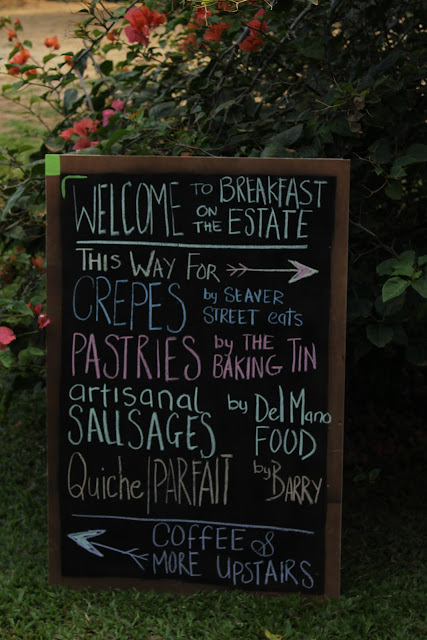 WELCOME TO BREAKFAST
ON THE ESTATE
THIS WAY FOR
CREPES by SEAVER STREET eats
PASTRIES by THE BAKING TIN
artisanal SAUSAGES by Del Mano FOOD
Quiche|PARFAIT by BARRY
COFFEE &
MORE UPSTAIRS